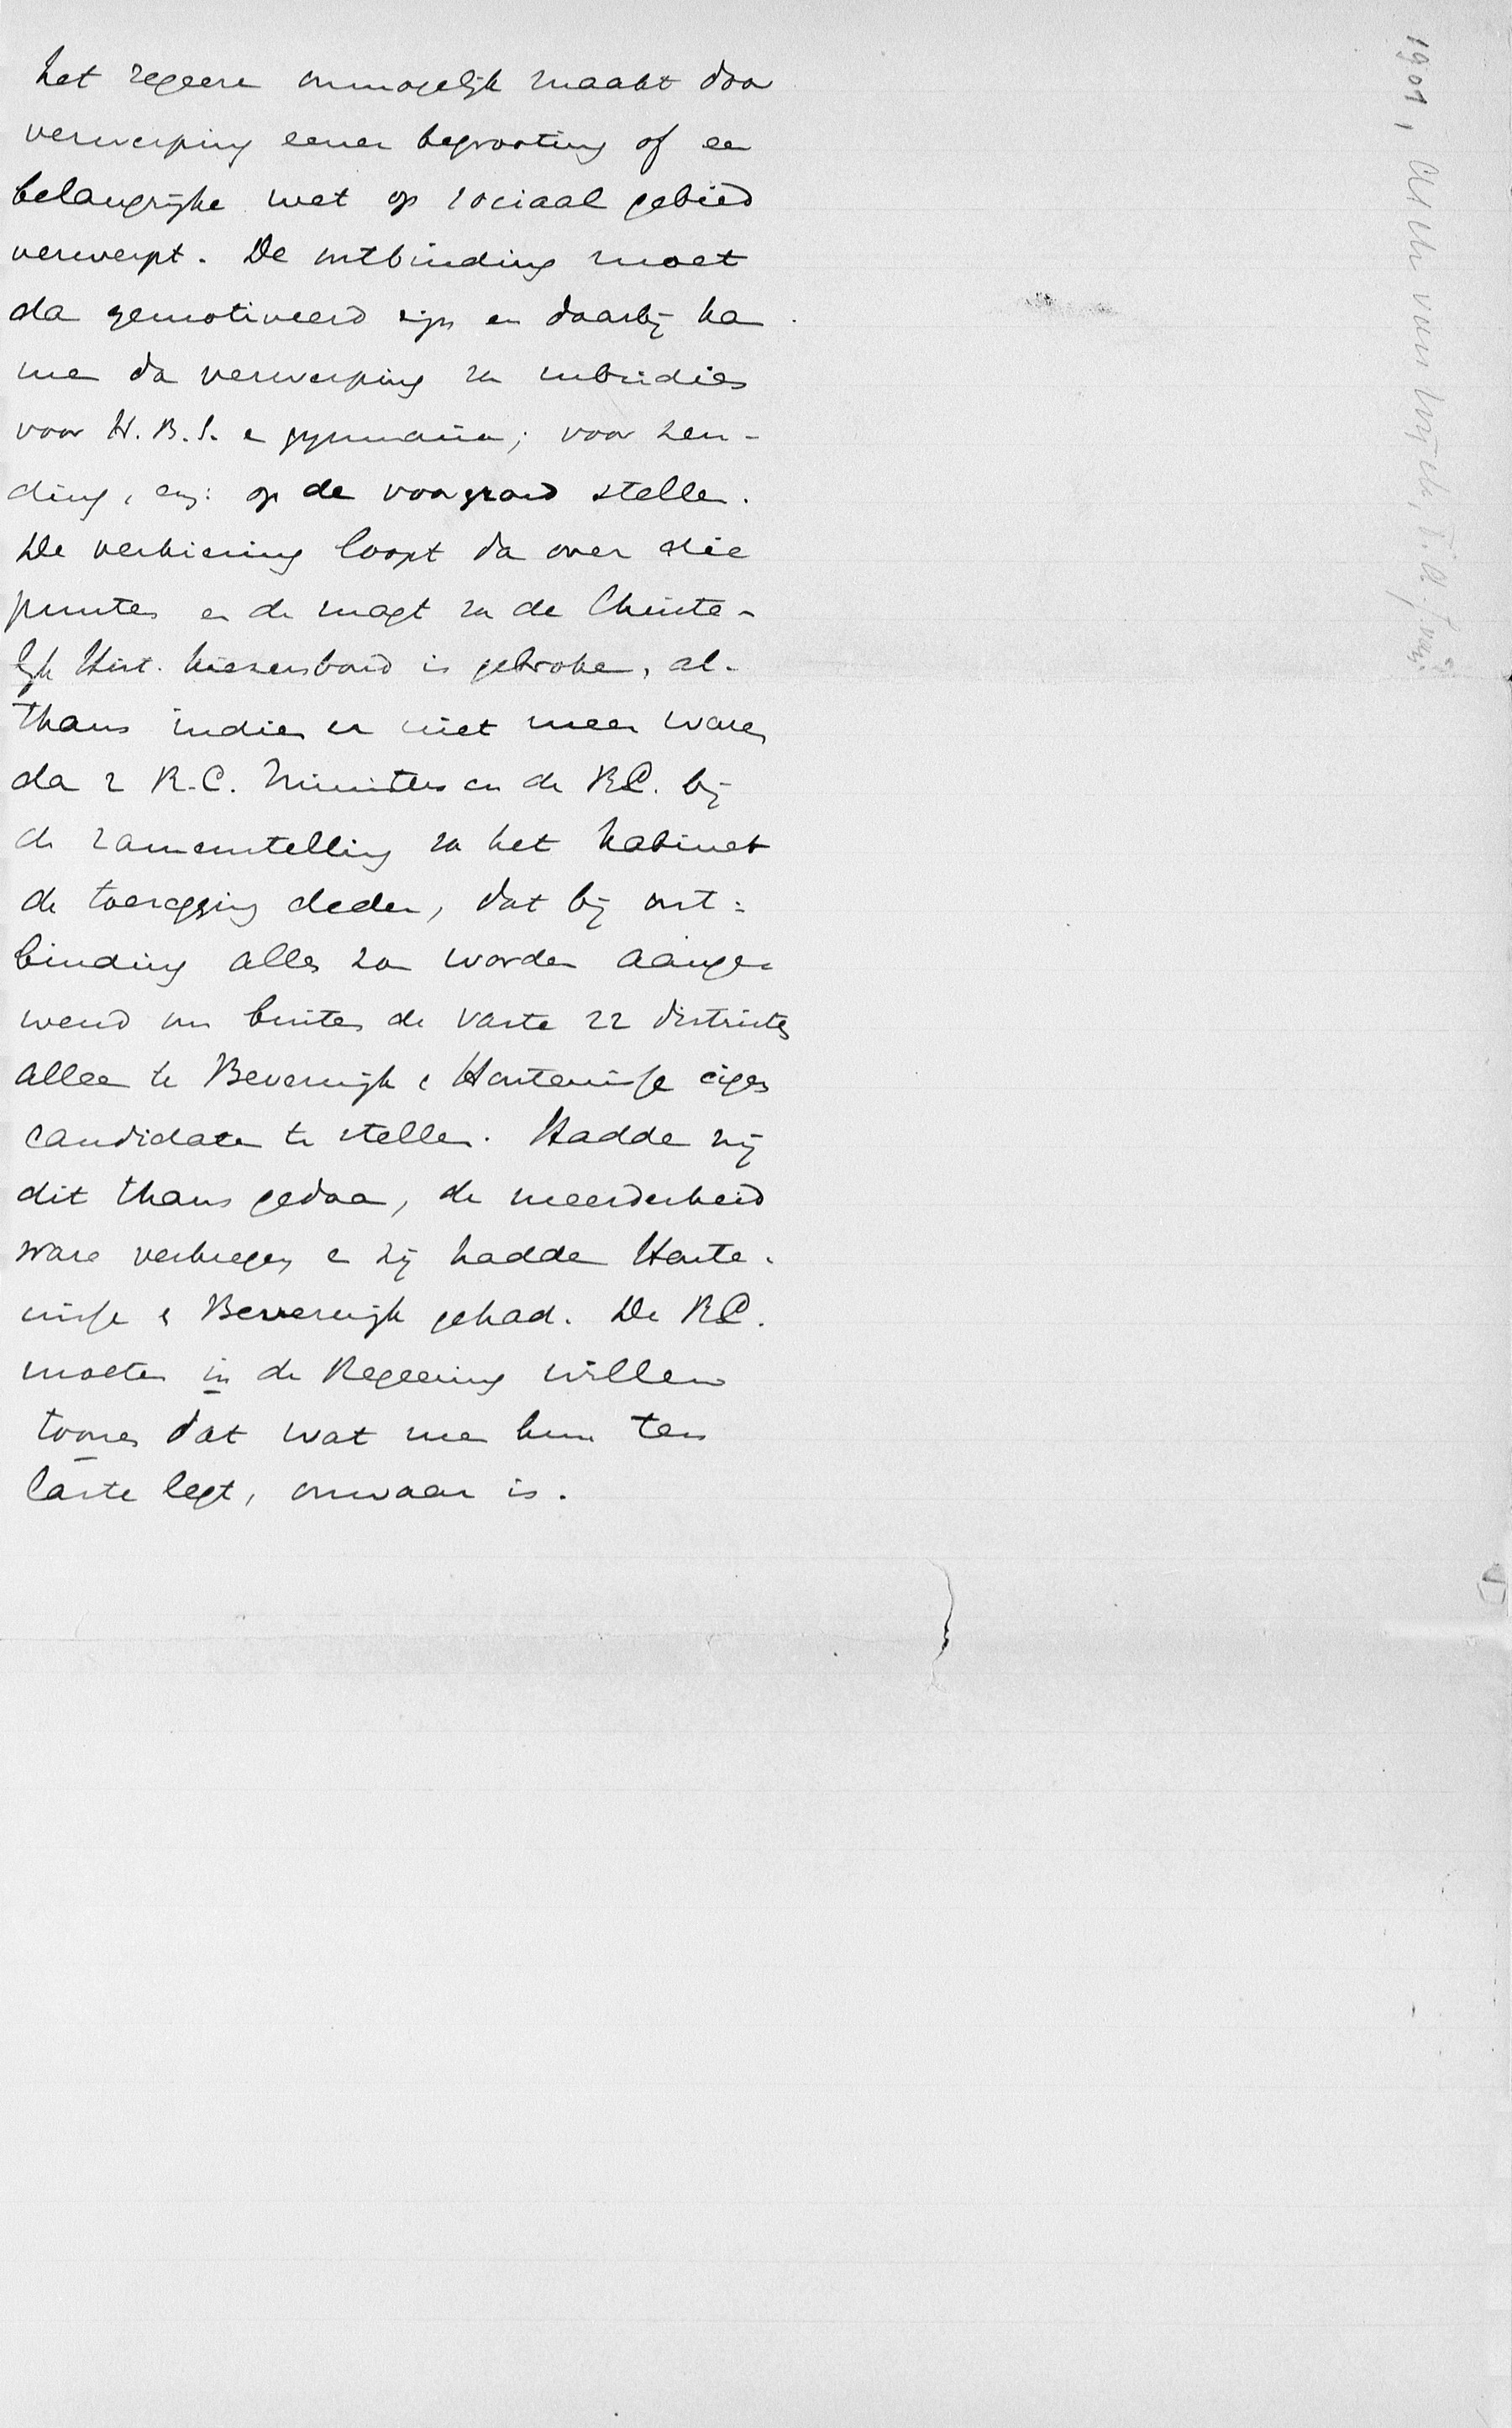 het regeere onmogelijk maakt door
verwerping eener begrooting of ee
belangrijke wet op sociaal gebied
verwerpt. De ontbinding moet
da gemotiveerd zijn en daarbij ka
me da verwerping va subsidies
voor H.B.S. e gymnasia; voor zen-
ding, enz: op de voorgrond stelle.
De verkiezing loopt da over die
punte en de magt va de Christe-
lijk Hist. kiezersbond is gebroke, al-
thans indien er niet meer ware
da 2 R.C. Ministers en de R.C. bij
de zamenstelling va het kabinet
de toezegging deden, dat bij ont=
binding alles zou worden aange-
wend om buiten de vaste 22 districten
alleen te Beverwijk e Hontenisse eigen
candidaten te stellen. Hadde zij
dit thans gedaa, de meerderheid
ware verkregen e zij hadde Honte-
nisse e Beverwijk gehad. De R.C.
moeten in de Regeering willen
toonen dat wat me hun ten
laste legt, onwaar is.
1901,